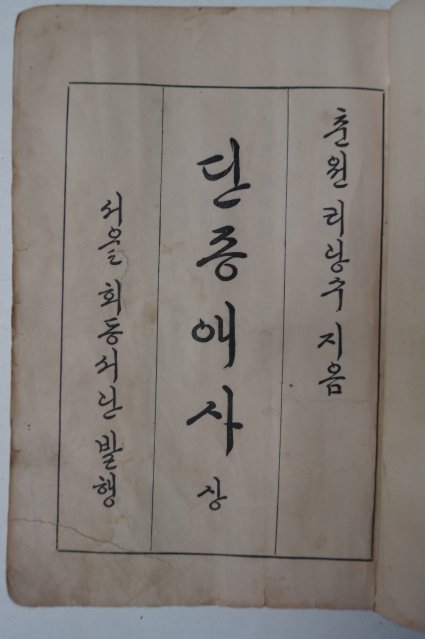 춘원 리광수 지음
단종애사 상
서울 회동서관 발행